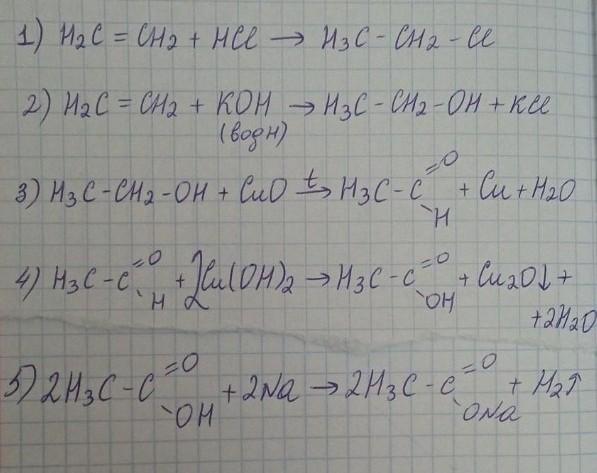 1) H2C = CH2 + HCl → H3C - CH2 - Cl
2) H2C = CH2 + KOH → H3C - CH2 - OH + KCl
(водн)
3) H3C - CH2 - OH + CuO t→ H3C - C =O -H + Cu + H2O
4) H3C - C =O -H + 2Cu(OH)2 → H3C - C =O -OH + Cu2O↓ +
+2H2O
5) 2H3C - C =O -OH + 2Na → 2H3C - C =O -ONa + H2↑